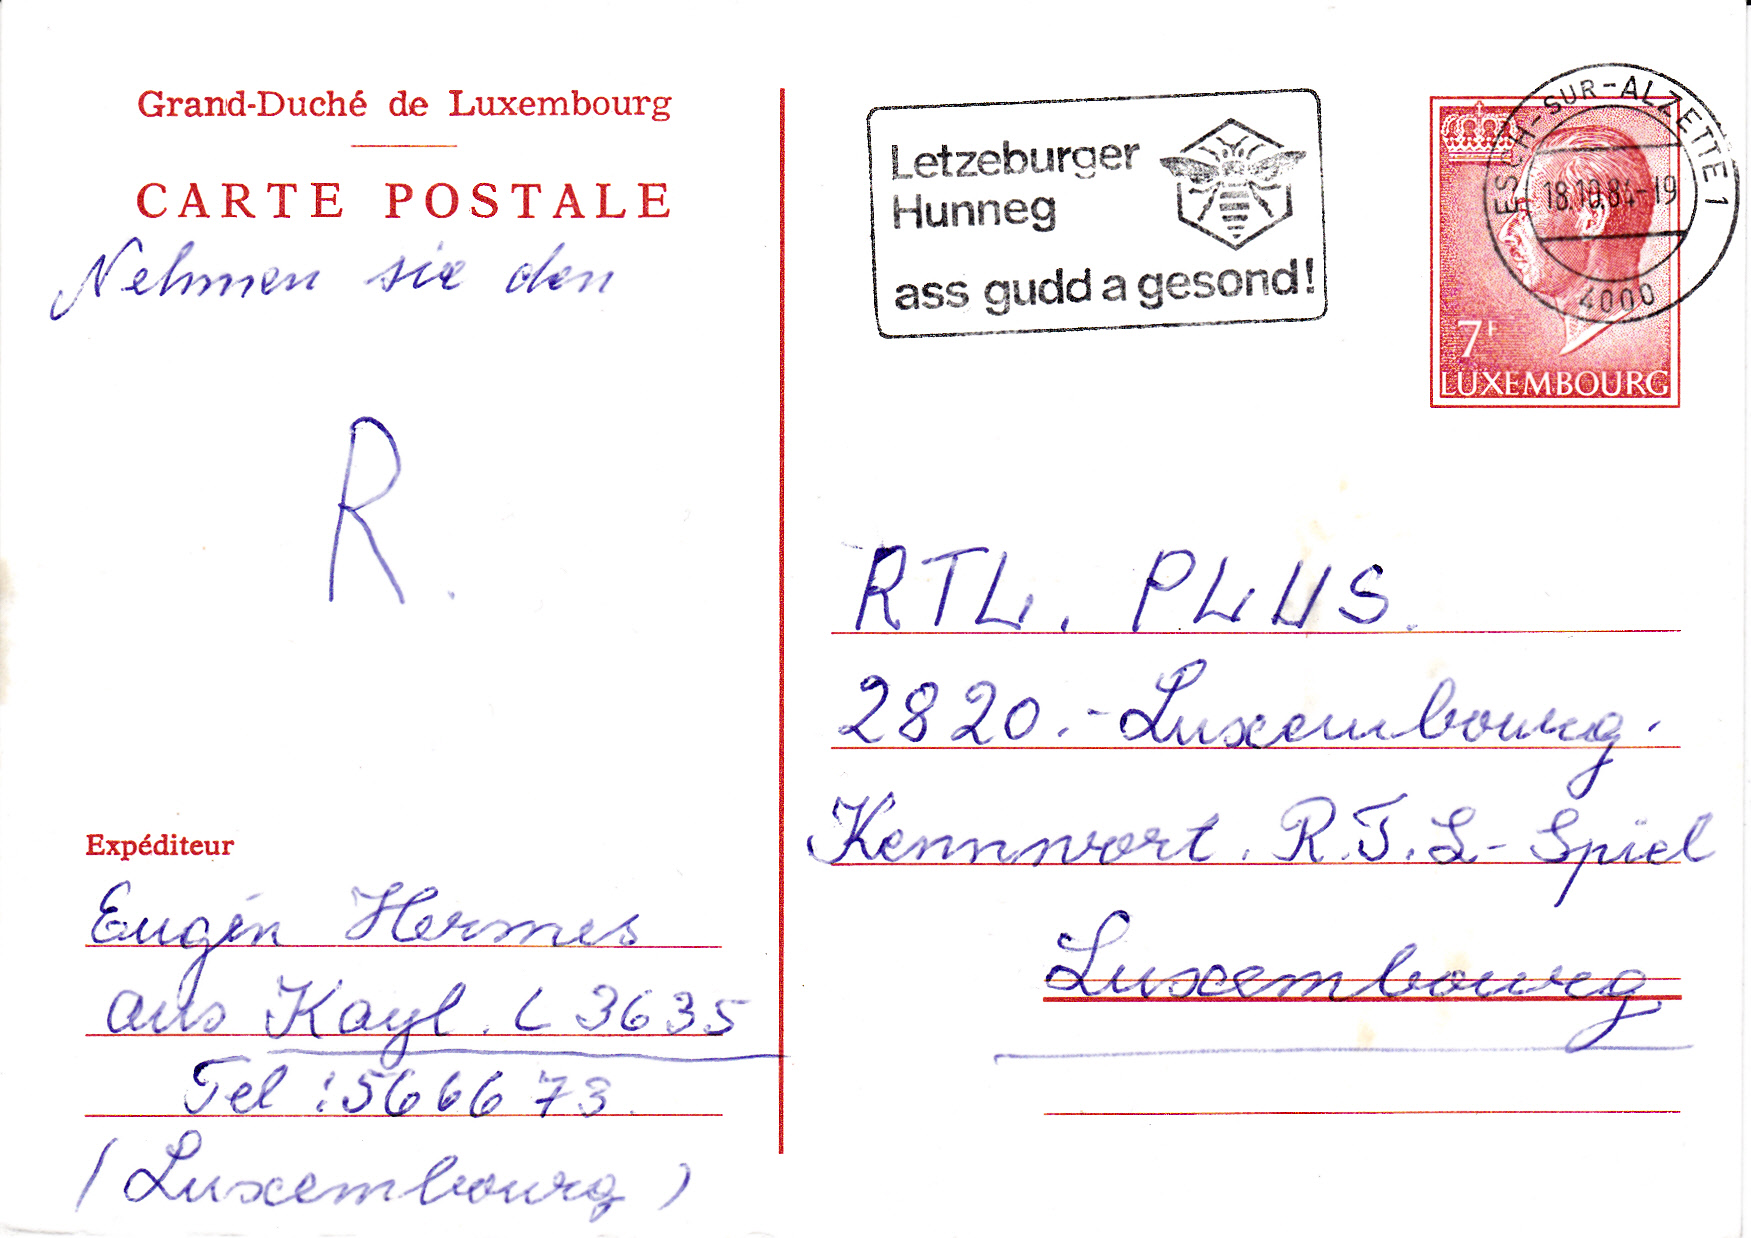 Grand-Duché de Luxembourg
CARTE POSTALE
Nehmen sie den
R.
Expéditeur
Eugén Hermes
aus Kayl. L 3635
Tel : 566673.
(Luxembourg)
Letzeburger
Hunneg
ass gudd a gesond!
ESCH-SUR-ALZETTE 1
18.10.84-19
4000
7F
LUXEMBOURG
RTL. PLUS.
2820.-Luxembourg.
Kennwort. R.T.L-Spiel
Luxembourg